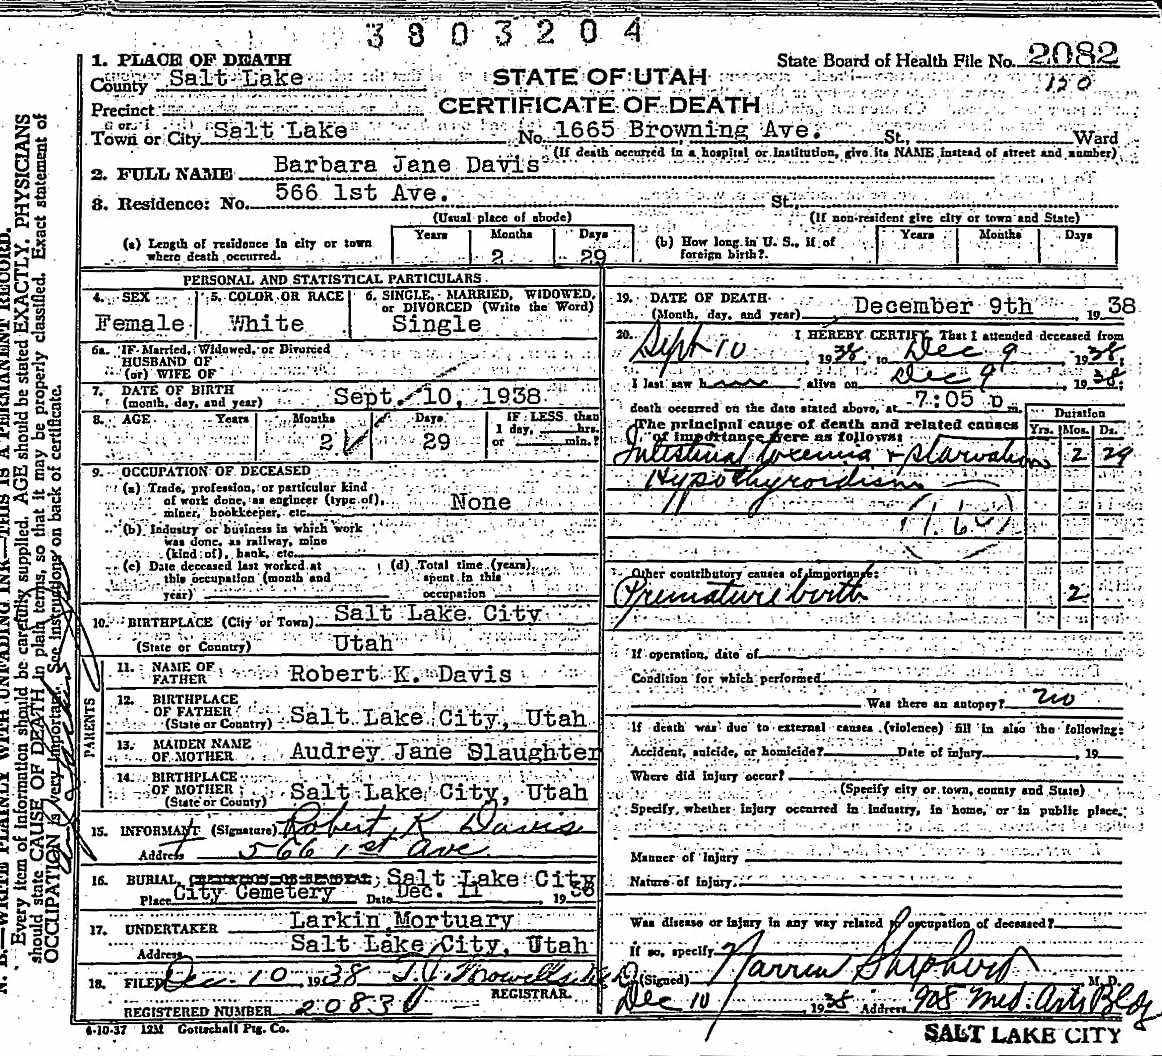 3803204
1. PLACE OF DEATH
State Board of Health File No. 2082
County Salt Lake
STATE OF UTAH
120
Precinct
CERTIFICATE OF DEATH
or
Town or City Salt Lake No. 1665 Browning Ave. St., Ward
(If death occurred in a hospital or Institution, give its NAME instead of street and number)
2. FULL NAME Barbara Jane Davis
3. Residence: No. 566 1st Ave. St.,
(Usual place of abode) (If non-resident give city or town and State)
(a) Length of residence in city or town where death occurred. Years Months 2 Days 29
(b) How long in U. S., if of foreign birth? Years Months Days
PERSONAL AND STATISTICAL PARTICULARS
4. SEX Female
5. COLOR OR RACE White
6. SINGLE, MARRIED, WIDOWED, or DIVORCED (Write the Word) Single
6a. IF Married, Widowed, or Divorced
HUSBAND OF
(or) WIFE OF
7. DATE OF BIRTH
(month, day, and year) Sept. 10, 1938
8. AGE Years Months 2 Days 29
IF LESS than
1 day, hrs.
or min.?
9. OCCUPATION OF DECEASED
(a) Trade, profession, or particular kind
of work done, as engineer (type of),
miner, bookkeeper, etc. None
(b) Industry or business in which work
was done, as railway, mine
(kind of), bank, etc.
(c) Date deceased last worked at
this occupation (month and
year)
(d) Total time (years)
spent in this
occupation
10. BIRTHPLACE (City or Town) Salt Lake City
(State or Country) Utah
PARENTS
11. NAME OF
FATHER Robert K. Davis
12. BIRTHPLACE
OF FATHER
(State or Country) Salt Lake City, Utah
13. MAIDEN NAME
OF MOTHER Audrey Jane Slaughter
14. BIRTHPLACE
OF MOTHER
(State or Country) Salt Lake City, Utah
15. INFORMANT (Signature) Robert K Davis
Address 566 1st Ave.
16. BURIAL, CREMATION OR REMOVAL, Salt Lake City
Place City Cemetery Date Dec. 11 1938
17. UNDERTAKER Larkin Mortuary
Address Salt Lake City, Utah
18. FILED Dec. 10 1938
REGISTRAR.
REGISTERED NUMBER
4-10-37 12M Gottschall Ptg. Co.
19. DATE OF DEATH
(Month, day, and year) December 9th 1938
20. I HEREBY CERTIFY, That I attended deceased from
Sept 10 1938 to Dec 9 1938;
I last saw h alive on Dec 9, 1938;
death occurred on the date stated above, at 7:05 p m.
The principal cause of death and related causes
of importance were as follows:
Duration
Yrs. Mos. Ds.
Intestinal toxemia + starvation 2 29
Hypothyroidism
Other contributory causes of importance:
Premature birth 2
If operation, date of
Condition for which performed
Was there an autopsy? no
If death was due to external causes (violence) fill in also the following:
Accident, suicide, or homicide? Date of injury 19
Where did injury occur?
(Specify city or town, county and State)
Specify, whether injury occurred in industry, in home, or in public place.
Manner of Injury
Nature of Injury
Was disease or injury in any way related to occupation of deceased?
If so, specify
(Signed) Warren Shepherd M. D.
Dec 10 1938 Address 908 Med. Arts Bldg
SALT LAKE CITY
N. B.—WRITE PLAINLY WITH UNFADING INK—THIS IS A PERMANENT RECORD.
Every item of information should be carefully supplied. AGE should be stated EXACTLY. PHYSICIANS
should state CAUSE OF DEATH in plain terms, so that it may be properly classified. Exact statement of
OCCUPATION is very important. See instructions on back of certificate.